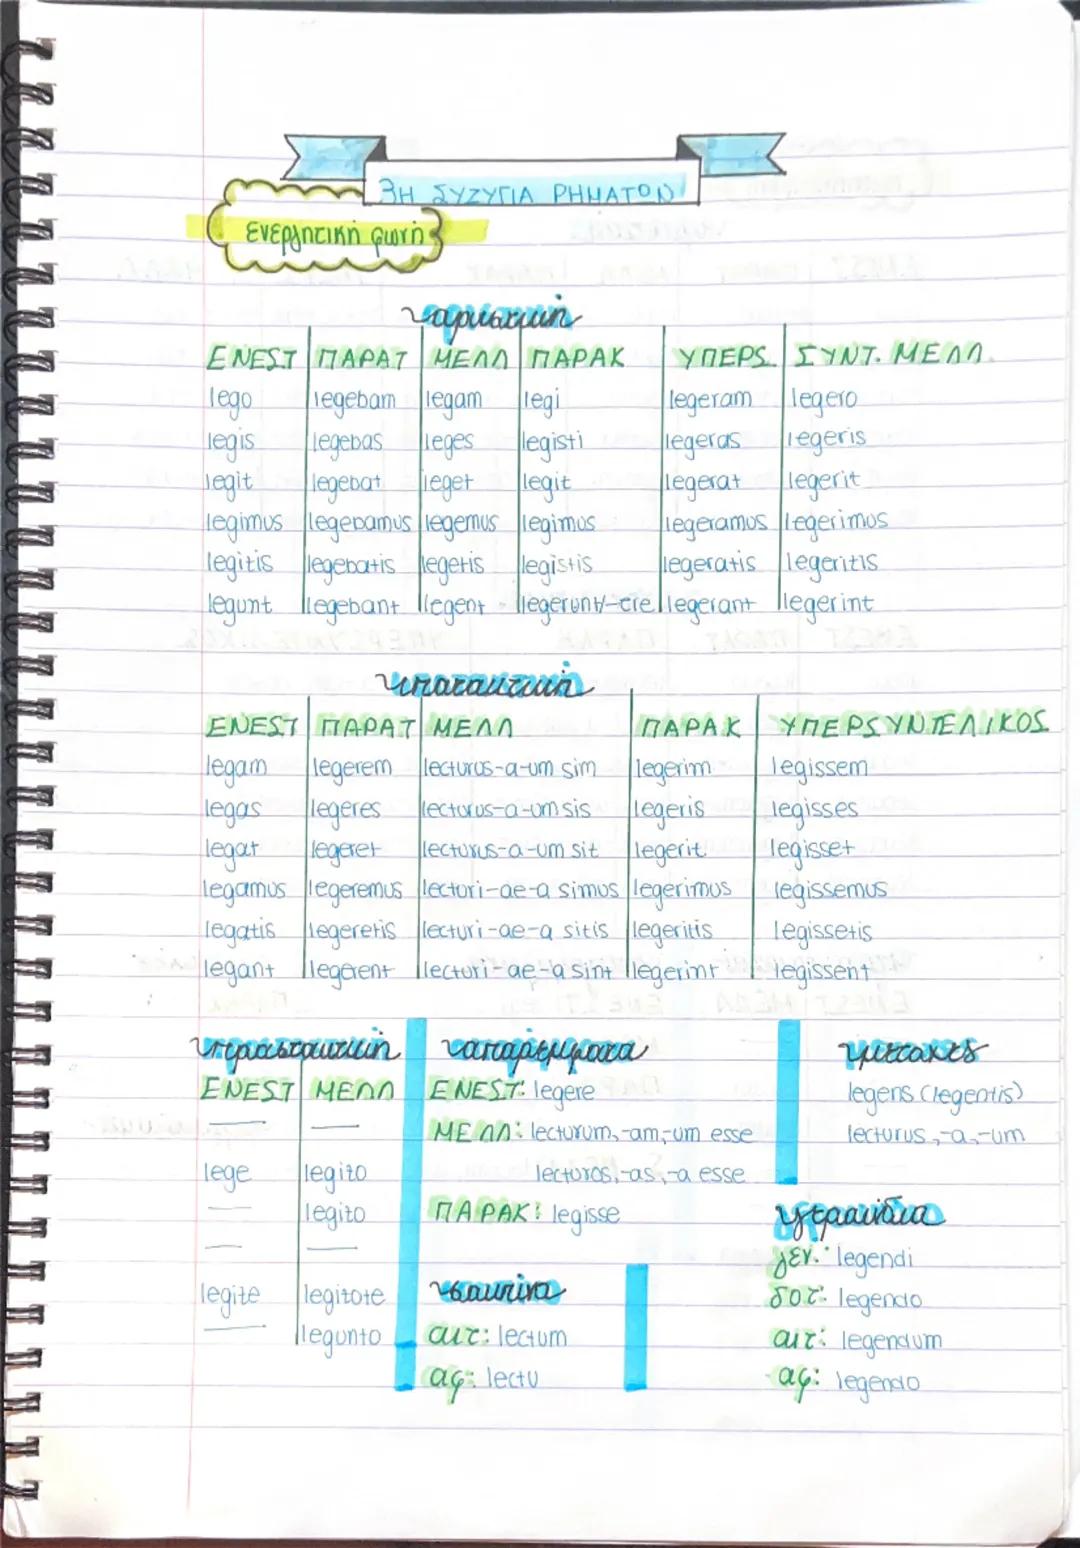 3Η ΣΥΖΥΓΙΑ ΡΗΜΑΤΩΝ
Ενεργητική φωνή
οριστική
ΕΝΕΣΤ ΠΑΡΑΤ ΜΕΛΛ ΠΑΡΑΚ ΥΠΕΡΣ. ΣΥΝΤ. ΜΕΛΛ.
lego legebam legam legi legeram legero
legis legebas leges legisti legeras legeris
legit legebat leget legit legerat legerit
legimus legebamus legemus legimus legeramus legerimus
legitis legebatis legetis legistis legeratis legeritis
legunt legebant legent legerunt/-ere legerant legerint
υποτακτική
ΕΝΕΣΤ ΠΑΡΑΤ ΜΕΛΛ ΠΑΡΑΚ ΥΠΕΡΣΥΝΤΕΛΙΚΟΣ
legam legerem lecturus-a-um sim legerim legissem
legas legeres lecturus-a-um sis legeris legisses
legat legeret lecturus-a-um sit legerit legisset
legamus legeremus lecturi-ae-a simus legerimus legissemus
legatis legeretis lecturi-ae-a sitis legeritis legissetis
legant legerent lecturi-ae-a sint legerint legissent
προστακτική
ΕΝΕΣΤ ΜΕΛΛ
— —
lege legito
— legito
— —
legite legitote
— legunto
απαρέμφατα
ΕΝΕΣΤ: legere
ΜΕΛΛ: lecturum,-am,-um esse
lecturos,-as,-a esse
ΠΑΡΑΚ: legisse
σουπίνο
αιτ: lectum
αφ: lectu
μετοχές
legens (legentis)
lecturus,-a,-um
γερούνδιο
γεν.: legendi
δοτ: legendo
αιτ: legendum
αφ: legendo